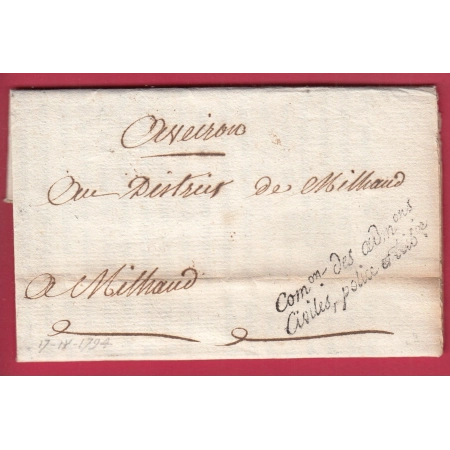 Aveiron
Au District de Milhaud
Com.on des adm.ons
Civiles, police et trib.x
a Milhaud
17-IV-1794